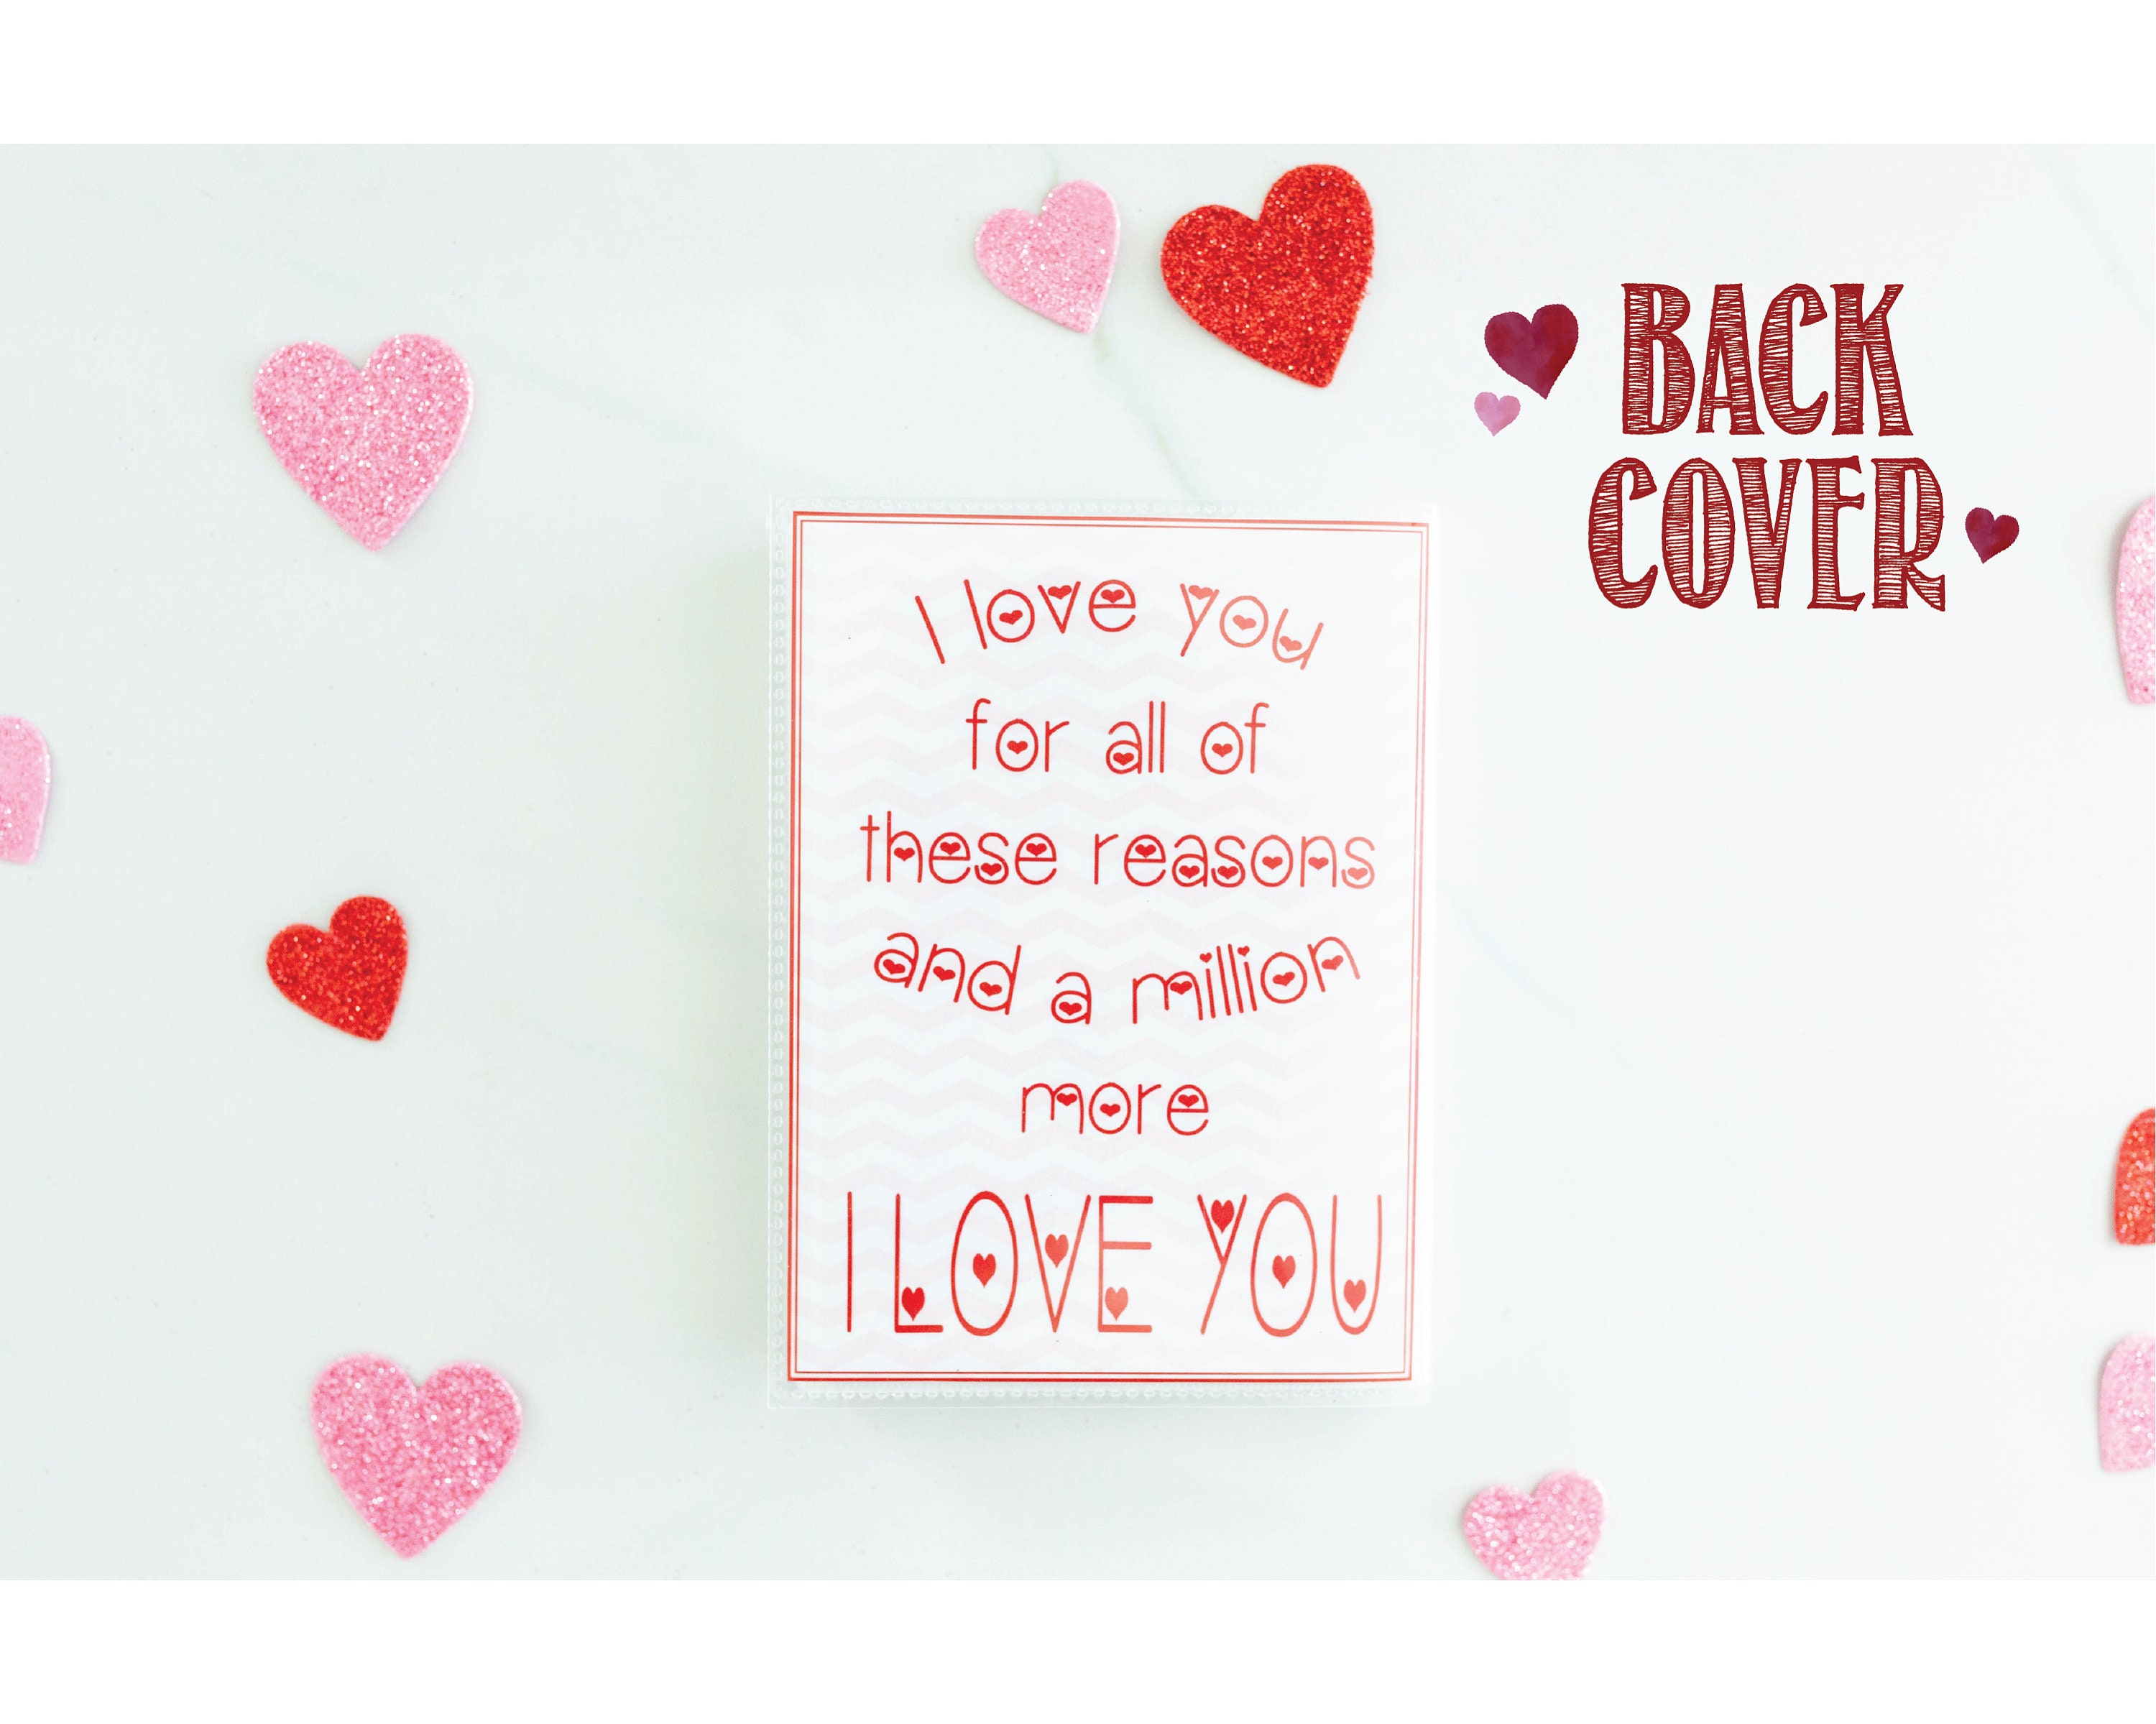 BACK
COVER
I love you
for all of
these reasons
and a million
more
I LOVE YOU